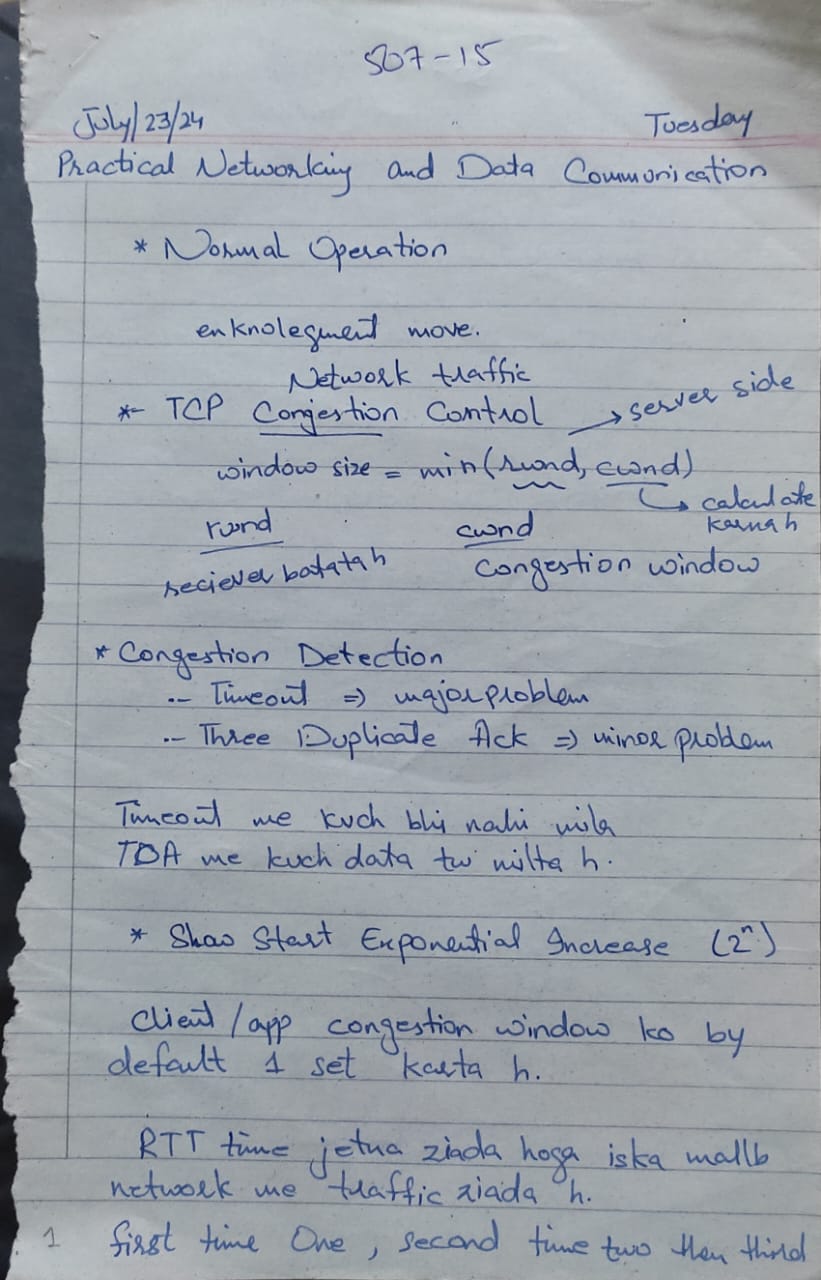 507-15
July/23/24 Tuesday
Practical Networking and Data Communication
* Normal Operation
enknolegment move.
Network traffic
* TCP Congestion Control → server side
window size = min(rwnd, cwnd)
↳ calculate
karna h
rwnd cwnd
reciever batata h Congestion window
* Congestion Detection
-- Timeout => major problem
-- Three Duplicate Ack => minor problem
Timeout me kuch bhi nahi mila
TDA me kuch data tw milta h.
* Slow Start Exponential Increase (2ⁿ)
Client/app congestion window ko by
default 1 set karta h.
RTT time jetna ziada hoga iska matlb
network me traffic ziada h.
1 first time One, second time two then third